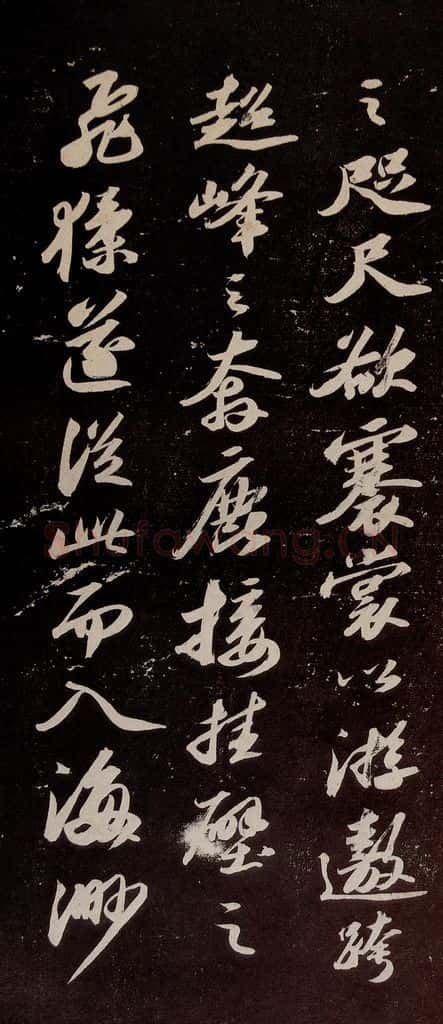 之咫尺欲褰裳以游遨跨
超峰之奔鹿接挂壁之
飛猱遂從此而入海渺
Shufawang.CN